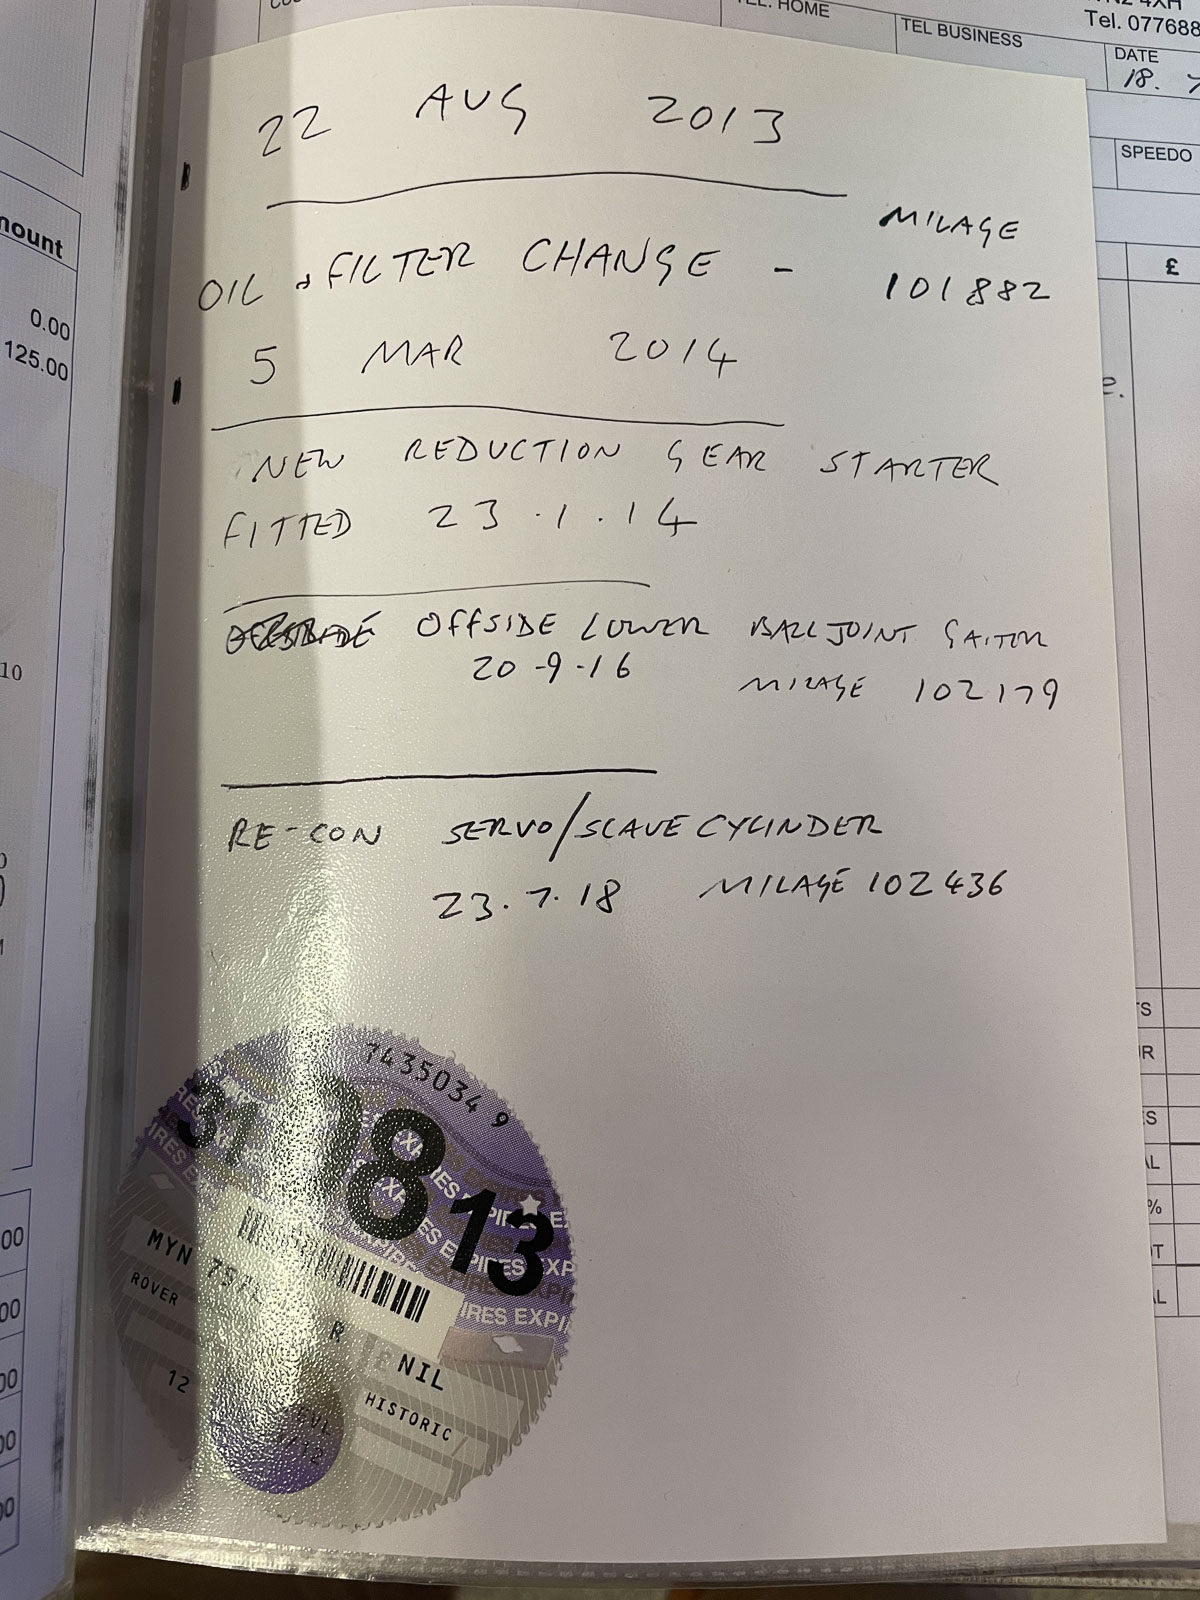 TEL. HOME
TEL BUSINESS
Tel. 077688
DATE
18.
SPEEDO
£
mount
0.00
125.00
10
22 AUG 2013
MILAGE
OIL & FILTER CHANGE - 101882
5 MAR 2014
NEW REDUCTION GEAR STARTER
FITTED 23.1.14
OFFSIDE LOWER BALL JOINT GAITOR
20-9-16 MILAGE 102179
RE-CON SERVO/SLAVE CYLINDER
23.7.18 MILAGE 102436
7435034 9
31 08 13
MYN
ROVER
R
NIL
12
HISTORIC
IRES EXPI
00
00
00
00
00
S
R
S
L
%
T
L